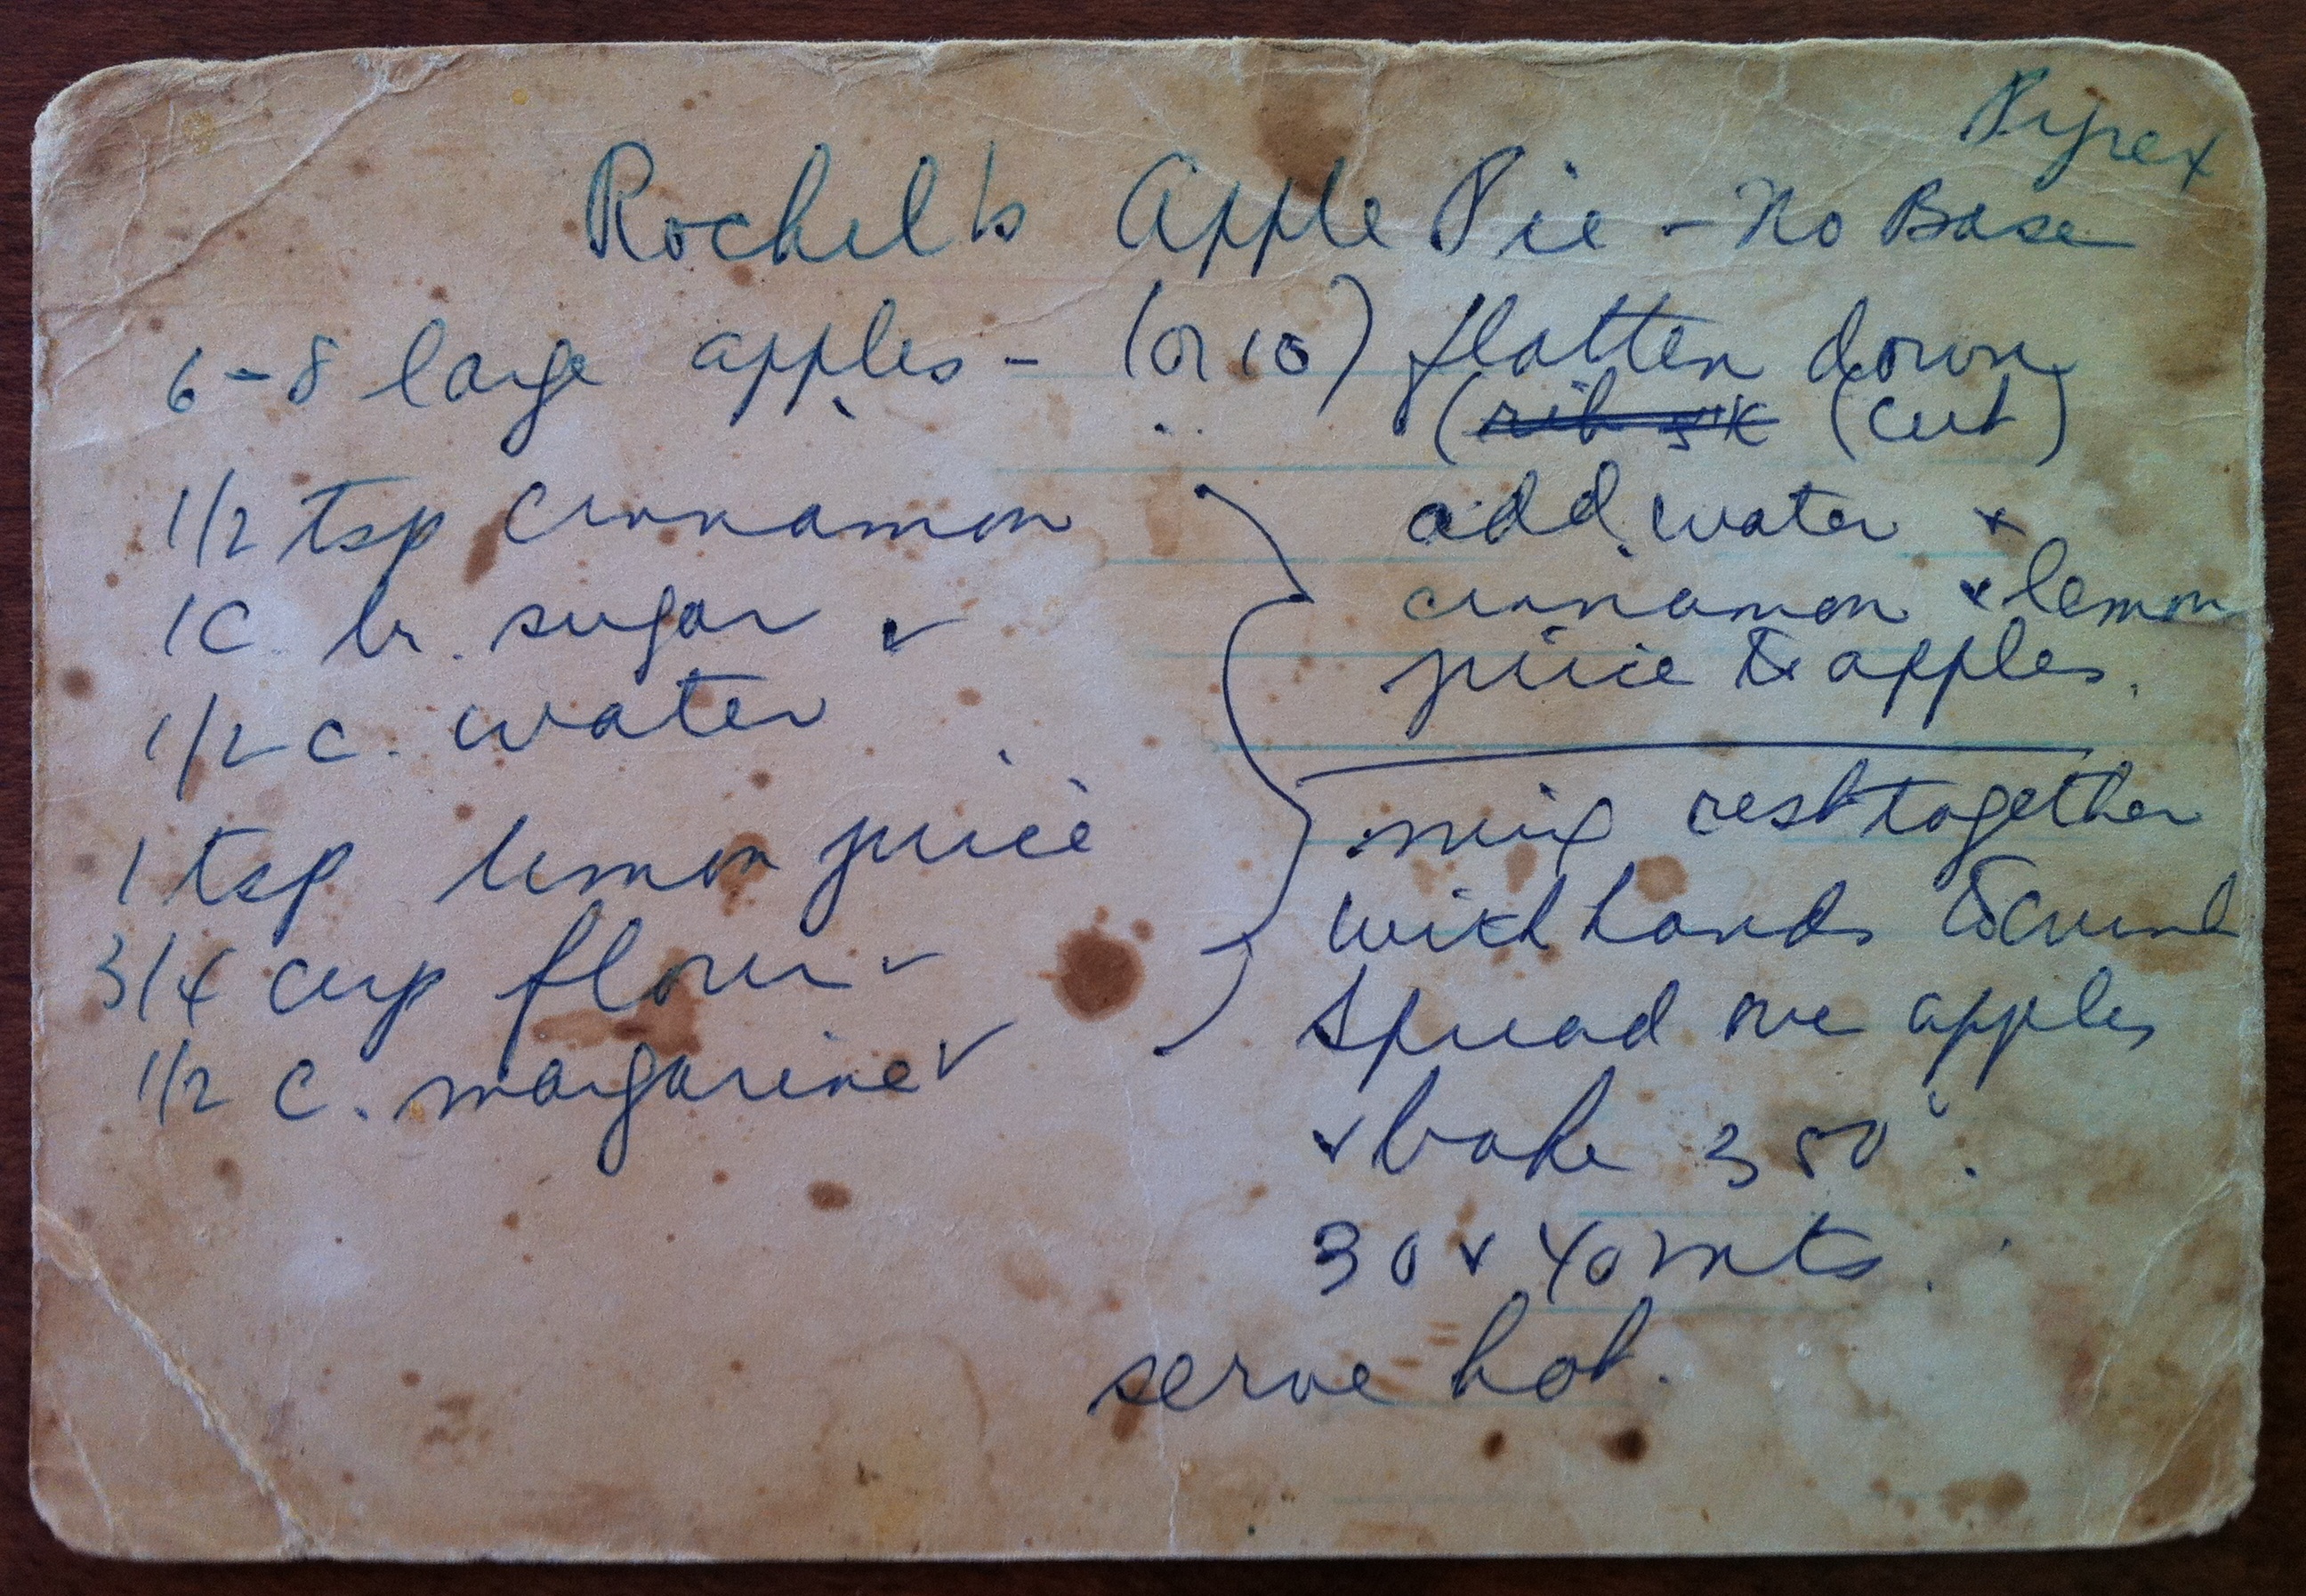 Pyrex
Rochel's Apple Pie - No Base
6-8 large apples - (or 10) flatten down
(cut)
1/2 tsp cinnamon
1 C. br. sugar ✓
1/2 c. water
1 tsp lemon juice
3/4 cup flour ✓
1/2 c. margarine ✓
add water +
cinnamon + lemon
juice to apples.
mix rest together
with hands to crumb
Spread ove apples
+ bake 350°.
30 + 40 mts.
serve hot.